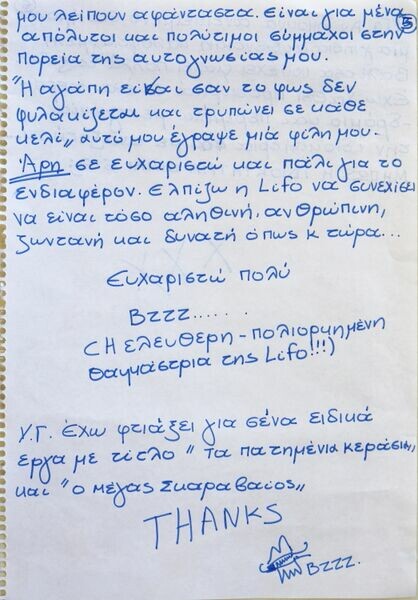 5
μου λείπουν αφάνταστα. Είναι για μένα
απόλυτοι και πολύτιμοι σύμμαχοι στην
πορεία της αυτογνωσίας μου.
"Η αγάπη είναι σαν το φως δεν
φυλακίζεται και τρυπώνει σε κάθε
κελί,, αυτό μου έγραψε μιά φίλη μου.
Άρη σε ευχαριστώ και πάλι για το
ενδιαφέρον. Ελπίζω η Lifo να συνεχίσει
να είναι τόσο αληθινή, ανθρώπινη,
ζωντανή και δυνατή όπως κ τώρα...
Ευχαριστώ πολύ
Βζζζ......
(Η ελεύθερη - πολιορκημένη
θαυμάστρια της Lifo!!!)
Υ.Γ. Έχω φτιάξει για σένα ειδικά
έργα με τίτλο " τα πατημένα κεράσια,,
και "ο μέγας Σκαραβαίος,,
THANKS
Βζζζ.